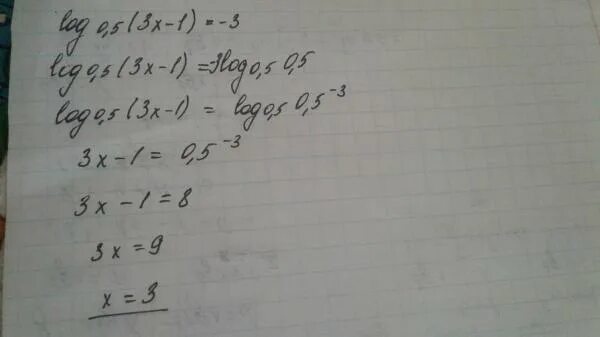 log 0,5 (3x-1) = -3
log 0,5 (3x-1) = -3log 0,5 0,5
log 0,5 (3x-1) = log 0,5 0,5⁻³
3x-1 = 0,5⁻³
3x - 1 = 8
3x = 9
x = 3